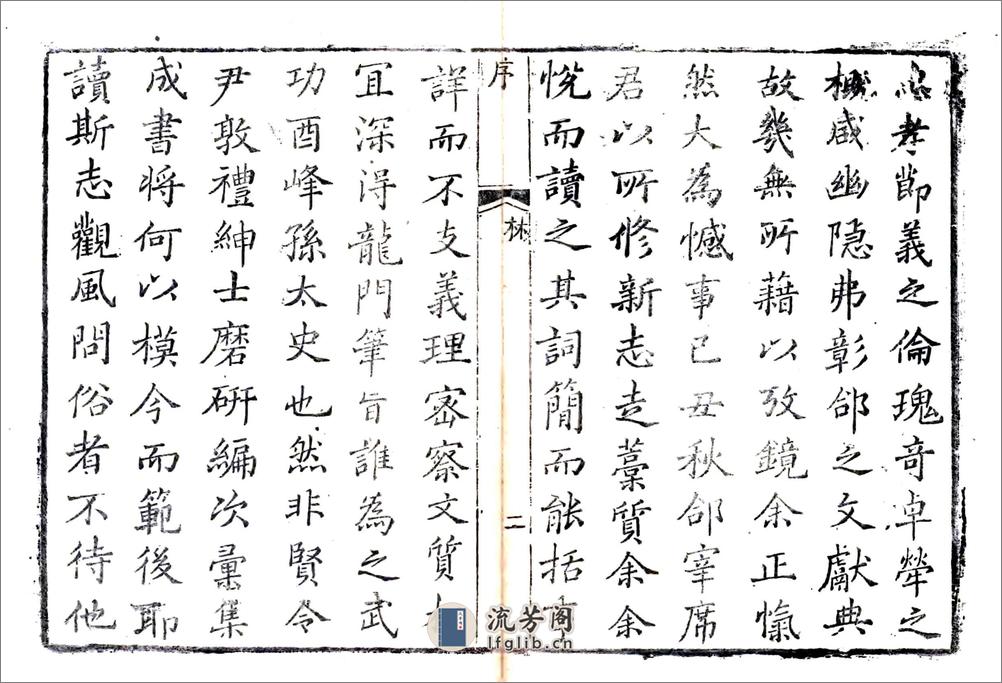 忠孝節義之倫瑰奇卓犖之
概咸幽隐弗彰郃之文獻典
故幾無所藉以攷鏡余正愾
然大為憾事已丑秋郃宰席
君以所修新志走藁質余余
悦而讀之其詞簡而能括
序
林
二
詳而不支義理宻察文質
宜深淂龍門筆旨誰為之武
功酉峰孫太史也然非賢令
尹敦禮紳士磨研編次彙集
成書将何以模今而範後耶
讀斯志觀風問俗者不待他
流芳阁
lfglib.cn